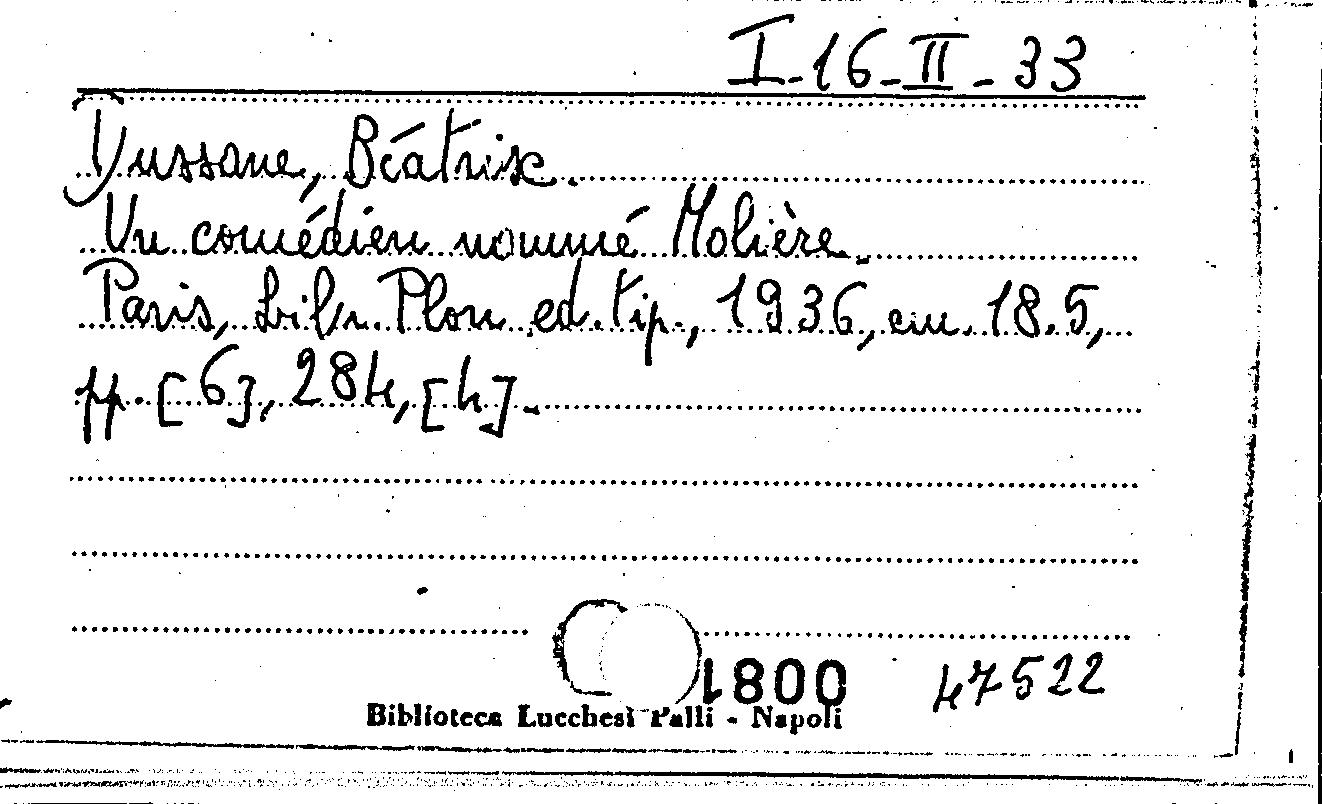 I-16-II-33
Dussane, Béatrix.
Un comédien nommé Molière.
Paris, Libr. Plon ed. tip., 1936, cm. 18.5,
pp. [6], 284, [4].
1800 47522
Biblioteca Lucchesi Palli - Napoli